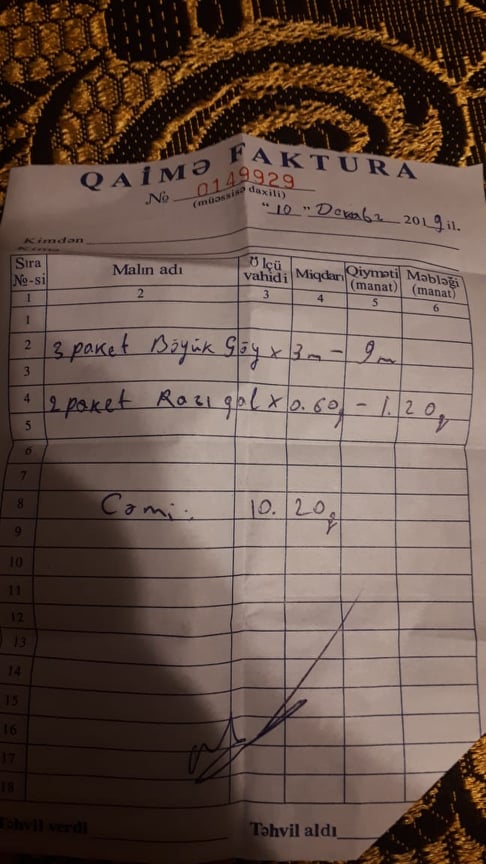 QAİMƏ FAKTURA
№ 0149929
(müəssisə daxili)
"10" Dekabr 2019 il.
Kimdən
Sıra №-si Malın adı Ölçü vahidi Miqdarı Qiyməti (manat) Məbləği (manat)
1 2 3 4 5 6
1
2 3 paket Böyük Göy x 3m - 9m
3
4 2 paket Razı qal x 0.60q - 1.20q
5
6
7
8 Cəmi: 10.20q
9
10
11
12
13
14
15
16
17
18
Təhvil verdi Təhvil aldı